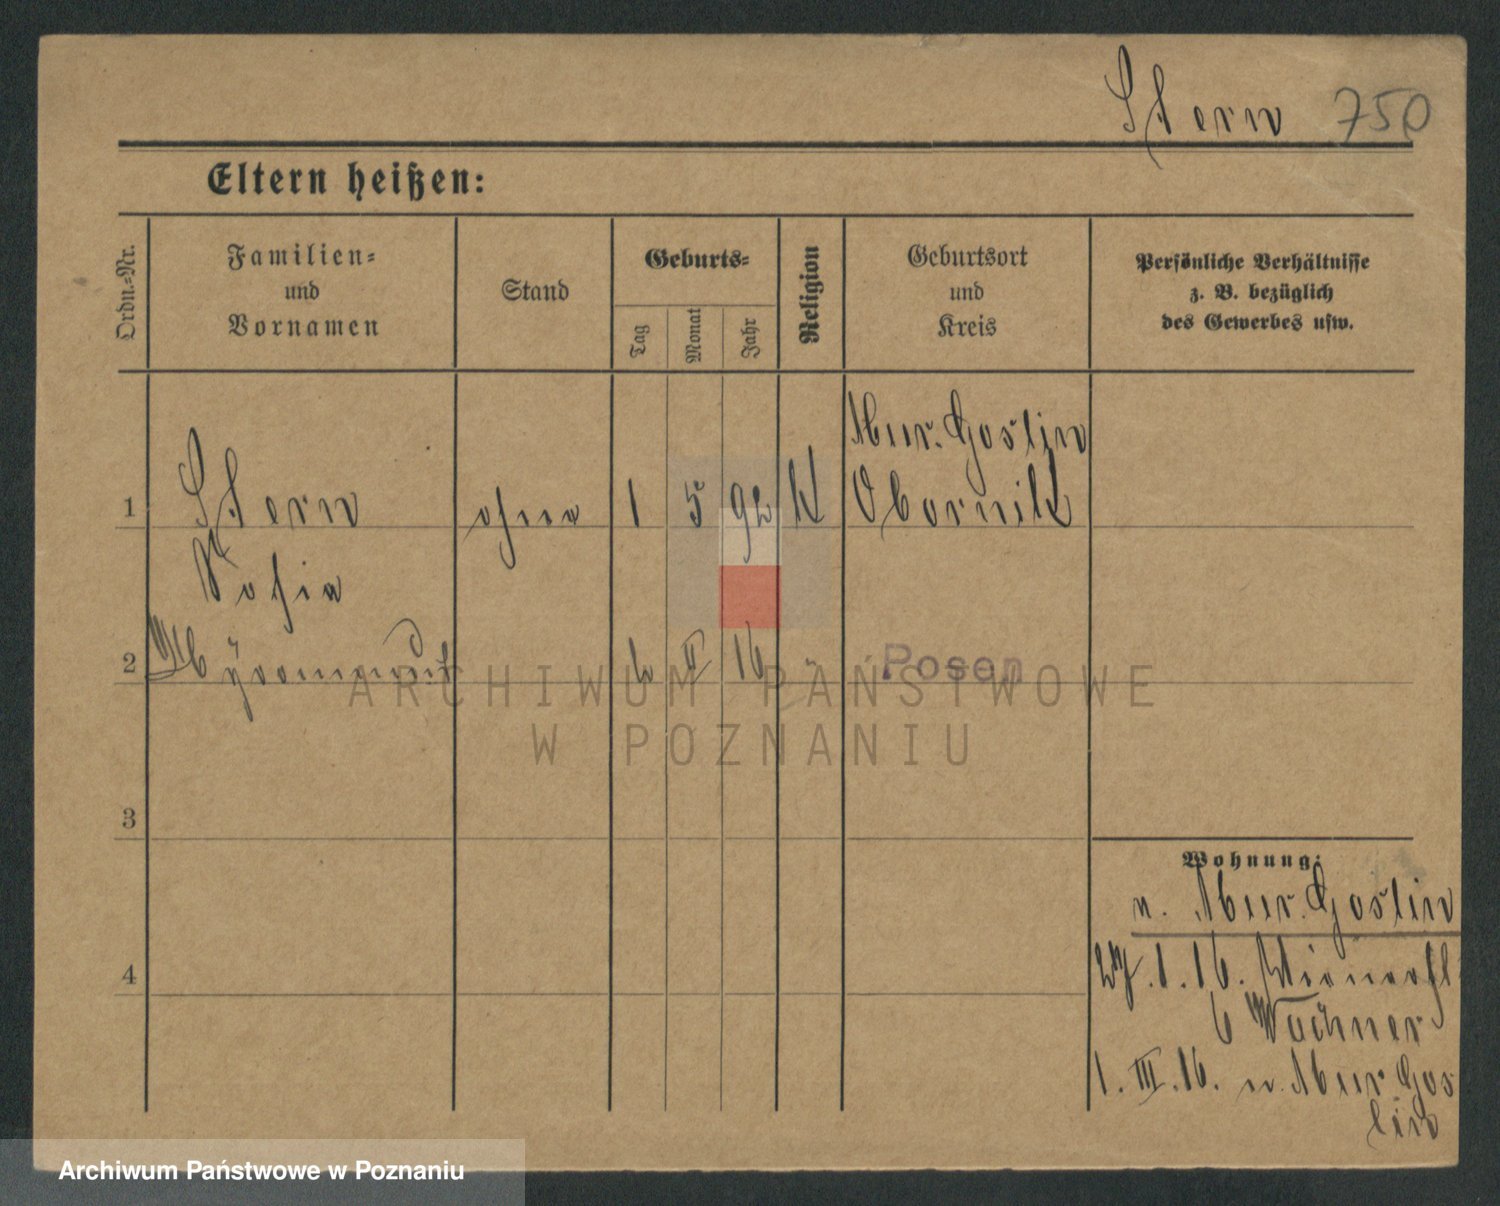 Stern 750
Eltern heißen:
Ordn.-Nr.
Familien-
und
Vornamen
Stand
Geburts-
Tag
Monat
Jahr
Religion
Geburtsort
und
Kreis
Persönliche Verhältnisse
z. B. bezüglich
des Gewerbes usw.
Mur. Goslin
1 Stern ohne 1 5 92 K Obornik
Sofia
2 2 II 16 Posen
3
4
Wohnung:
n. Mur. Goslin
27.1.16.
6 Wöchner
1. III. 16. n. Mur. Gos
lin
ARCHIWUM PAŃSTWOWE
W POZNANIU
Archiwum Państwowe w Poznaniu